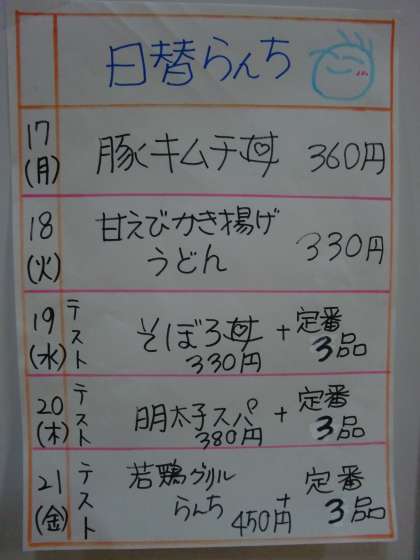 日替らんち
17
(月)
豚キムチ丼 360円
18
(火)
甘えびかき揚げ
うどん 330円
19
(水)
テスト
そぼろ丼 + 定番
330円 3品
20
(木)
テスト
明太子スパ + 定番
380円 3品
21
(金)
テスト
若鶏グリル 定番
らんち + 3品
450円